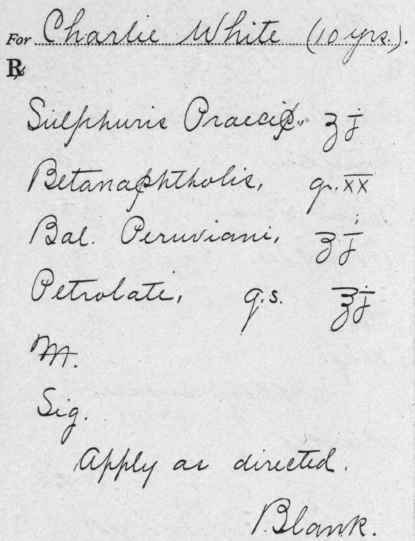 For Charlie White (10 yrs.).
℞
Sulphuris Praecip. ʒj
Betanaphtholis, gr. xx
Bal. Peruviani, ʒj
Petrolati, q.s. ℥j
M.
Sig.
Apply as directed.
Blank.